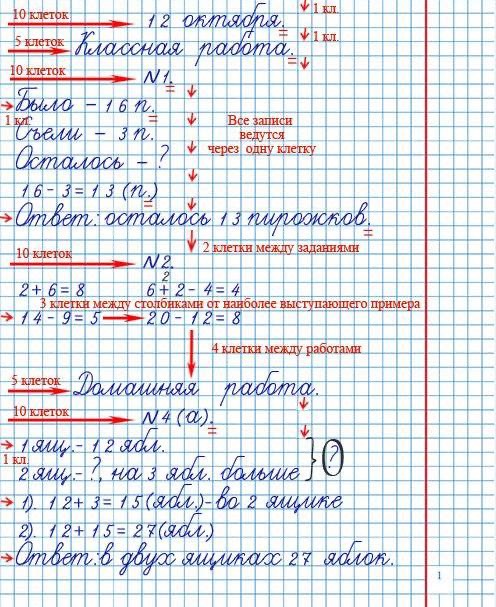 10 клеток 12 октября. 1 кл.
5 клеток Классная работа. 1 кл.
10 клеток N1.
Было - 16 п.
1 кл.
Съели - 3 п.
Все записи
ведутся
через одну клетку
Осталось - ?
16 - 3 = 13 (п.)
Ответ: осталось 13 пирожков.
2 клетки между заданиями
10 клеток N2.
2
2 + 6 = 8 6 + 2 - 4 = 4
3 клетки между столбиками от наиболее выступающего примера
14 - 9 = 5 20 - 12 = 8
4 клетки между работами
5 клеток Домашняя работа.
10 клеток N4 (а).
1 ящ. - 12 ябл.
1 кл.
2 ящ. - ?, на 3 ябл. больше } ?
1). 12 + 3 = 15 (ябл.) - во 2 ящике
2). 12 + 15 = 27 (ябл.)
Ответ: в двух ящиках 27 яблок.
1